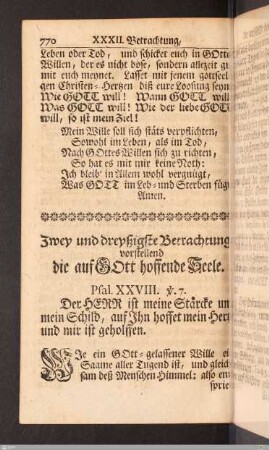 770 XXXII. Betrachtung,
Leben oder Tod, und schicket euch in GOtte
Willen, der es nicht böse, sondern allezeit gu
mit euch meynet. Lasset mit jenem gottseel
gen Christen-Hertzen diß eure Loosung seyn
Wie GOTT will! Wann GOTT will
Was GOTT will! Wie der liebe GOT
will, so ist mein Ziel!
Mein Wille soll sich stäts verpflichten,
Sowohl im Leben, als im Tod,
Nach GOttes Willen sich zu richten,
So hat es mit mir keine Noth:
Ich bleib' in Allem wohl vergnügt,
Was GOTT im Leb- und Sterben fügt
Amen.
Zwey und dreyßigste Betrachtung
vorstellend
die auf GOtt hoffende Seele.
Psal. XXVIII. v. 7.
Der HERR ist meine Stärcke un
mein Schild, auf Ihn hoffet mein Hertz
und mir ist geholffen.
WIe ein GOtt-gelassener Wille ei
Saame aller Tugend ist, und gleich
sam deß Menschen Himmel: also en
sprie